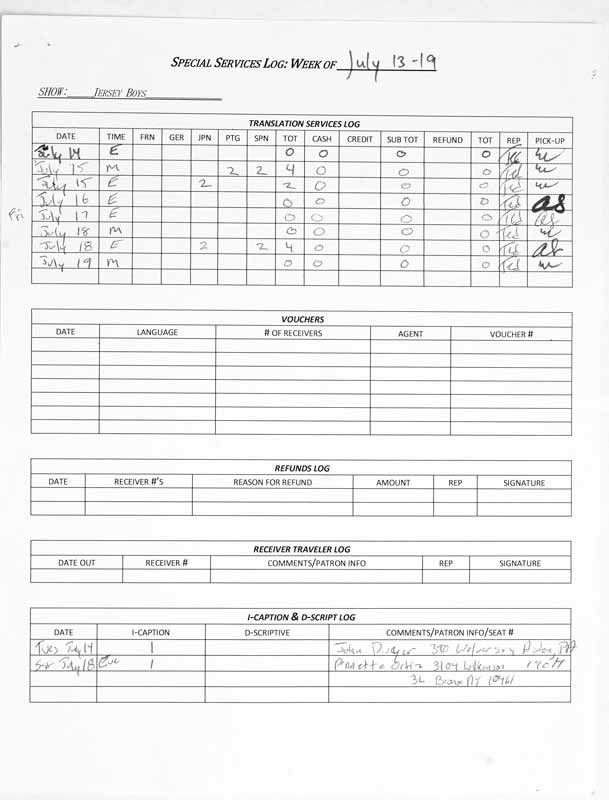 SPECIAL SERVICES LOG: WEEK OF July 13-19
SHOW: JERSEY BOYS
TRANSLATION SERVICES LOG
DATE TIME FRN GER JPN PTG SPN TOT CASH CREDIT SUB TOT REFUND TOT REP PICK-UP
July 14 E 0 0 0 0
July 15 M 2 2 4 0 0 0 Ted
July 15 E 2 2 0 0 0 Ted
July 16 E 0 0 0 0 Ted as
Fri July 17 E 0 0 0 0 Ted as
July 18 M 0 0 0 0 Ted
July 18 E 2 2 4 0 0 0 Ted as
July 19 M 0 0 0 0 Ted
VOUCHERS
DATE LANGUAGE # OF RECEIVERS AGENT VOUCHER #
REFUNDS LOG
DATE RECEIVER #'S REASON FOR REFUND AMOUNT REP SIGNATURE
RECEIVER TRAVELER LOG
DATE OUT RECEIVER # COMMENTS/PATRON INFO REP SIGNATURE
I-CAPTION & D-SCRIPT LOG
DATE I-CAPTION D-SCRIPTIVE COMMENTS/PATRON INFO/SEAT #
Tues July 14 1 John
Sat July 18 Eve 1 Annette Ortiz 3104 Wilkinson
3L Bronx NY 10461